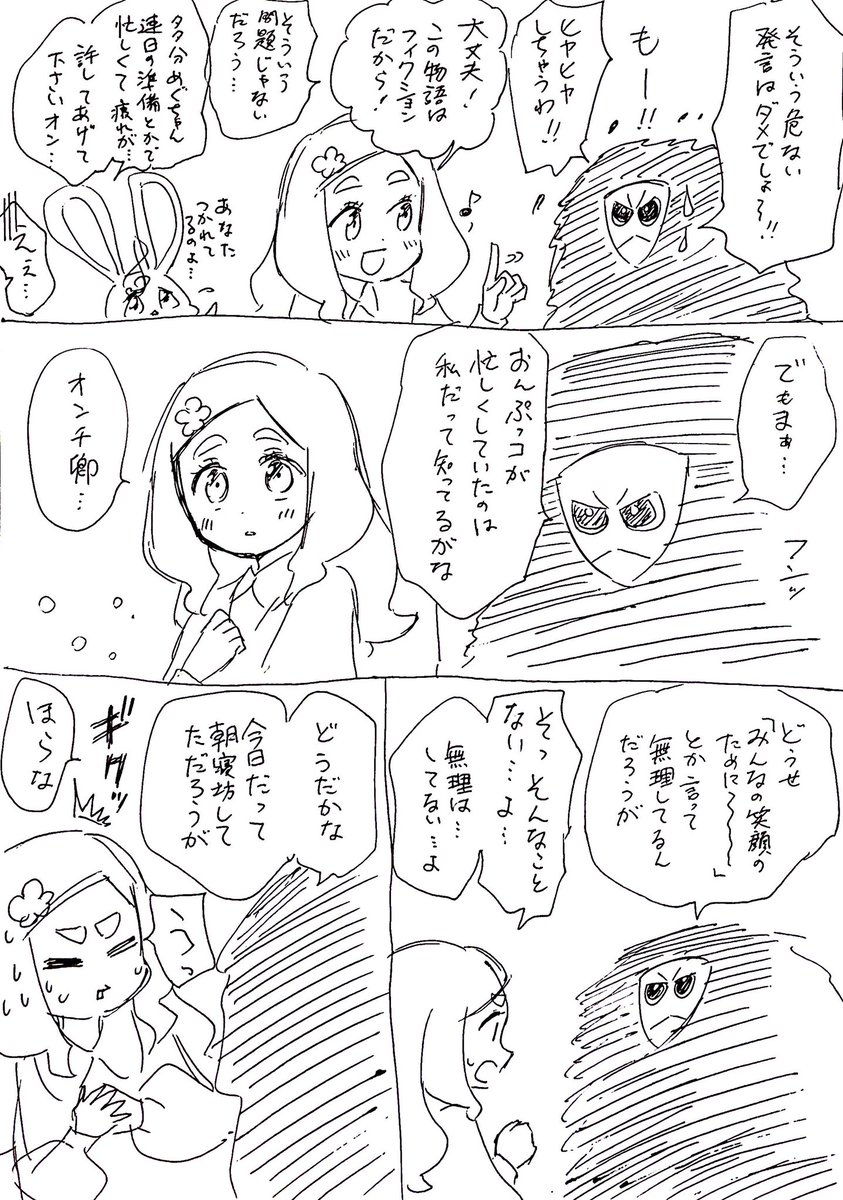 そういう危ない
発言はダメでしょ〜!!
もー!!
ヒヤヒヤ
しちゃうわ!!
大丈夫!
この物語は
フィクション
だから!
そういう
問題じゃない
だろう…
多分めぐちゃん
連日の準備とかで
忙しくて疲れが…
許してあげて
下さいオン…
あなた
つかれて
るのよ…
えぇ…
でもまぁ…
フンッ
おんぷっコが
忙しくしていたのは
私だって知ってるがな
オンチ卿…
どうせ
「みんなの笑顔の
ために〜〜〜」
とか言って
無理してるん
だろうが
そっそんなこと
ない…よ…
無理は…
してない…よ
どうだかな
今日だって
朝寝坊して
ただろうが
うっ
ギクッ
ほらな